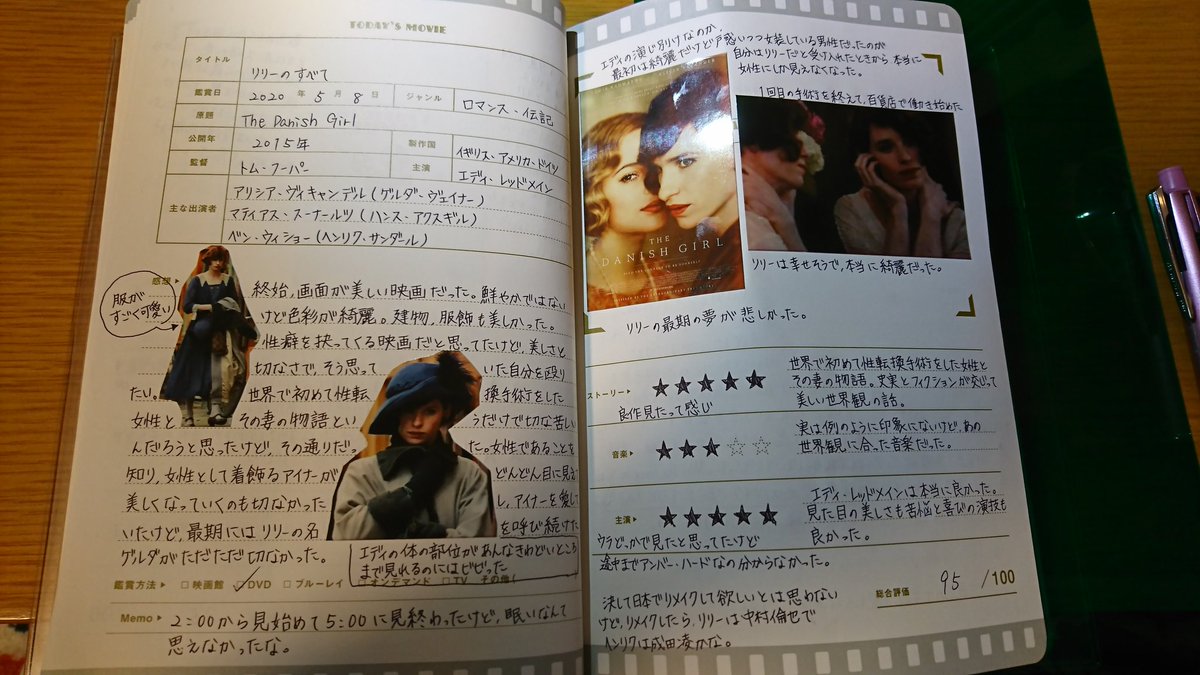 TODAY'S MOVIE
タイトル リリーのすべて
鑑賞日 2020 年 5 月 8 日 ジャンル ロマンス・伝記
原題 The Danish Girl
公開年 2015年 製作国 イギリス・アメリカ・ドイツ
監督 トム・フーパー 主演 エディ・レッドメイン
主な出演者 アリシア・ヴィキャンデル(ゲルダ・ヴェイナー)
マティアス・スーナールツ(ハンス・アクスギル)
ベン・ウィショー(ヘンリク・サンダール)
感想
服が
すごく可愛い
終始、画面が美しい映画だった。鮮やかではない
けど色彩が綺麗。建物、服飾も美しかった。
性癖を抉ってくる映画だと思ってたけど、美しさと
切なさで、そう思って いた自分を殴り
たい。 世界で初めて性転 換手術をした
女性と その妻の物語とい うだけで切な苦しい
んだろうと思ったけど、その通りだっ た。女性であることを
知り、女性として着飾るアイナーが どんどん目に見えて
美しくなっていくのも切なかった し、アイナーを愛して
いたけど、最期にはリリーの名 を呼び続けた
ゲルダがただただ切なかった。
エディの体の部位があんなきわどいところ
まで見れるのにはビビった
鑑賞方法 □映画館 ☑DVD □ブルーレイ □オンデマンド □TV その他(
Memo 2:00から見始めて5:00に見終わったけど、眠いなんて
思えなかったな。
エディの演じ別けなのか、
最初は綺麗だけど戸惑いつつ女装している男性だったのが
自分はリリーだと受け入れたときから本当に
女性にしか見えなくなった。
1回目の手術を終えて、百貨店で働き始めた
THE
DANISH GIRL
リリーは幸せそうで、本当に綺麗だった。
リリーの最期の夢が悲しかった。
ストーリー ★★★★★
良作見たって感じ
世界で初めて性転換手術をした女性と
その妻の物語。史実とフィクションが交じって
美しい世界観の話。
音楽 ★★★☆☆
実は例のように印象にないけど、あの
世界観に合った音楽だった。
主演 ★★★★★
エディ・レッドメインは本当に良かった。
見た目の美しさも苦悩と喜びの演技も
良かった。
ウラどっかで見たと思ってたけど
途中までアンバー・ハードなの分からなかった。
総合評価 95 /100
決して日本でリメイクして欲しいとは思わない
けど、リメイクしたら、リリーは中村倫也で
ヘンリクは成田凌かな。